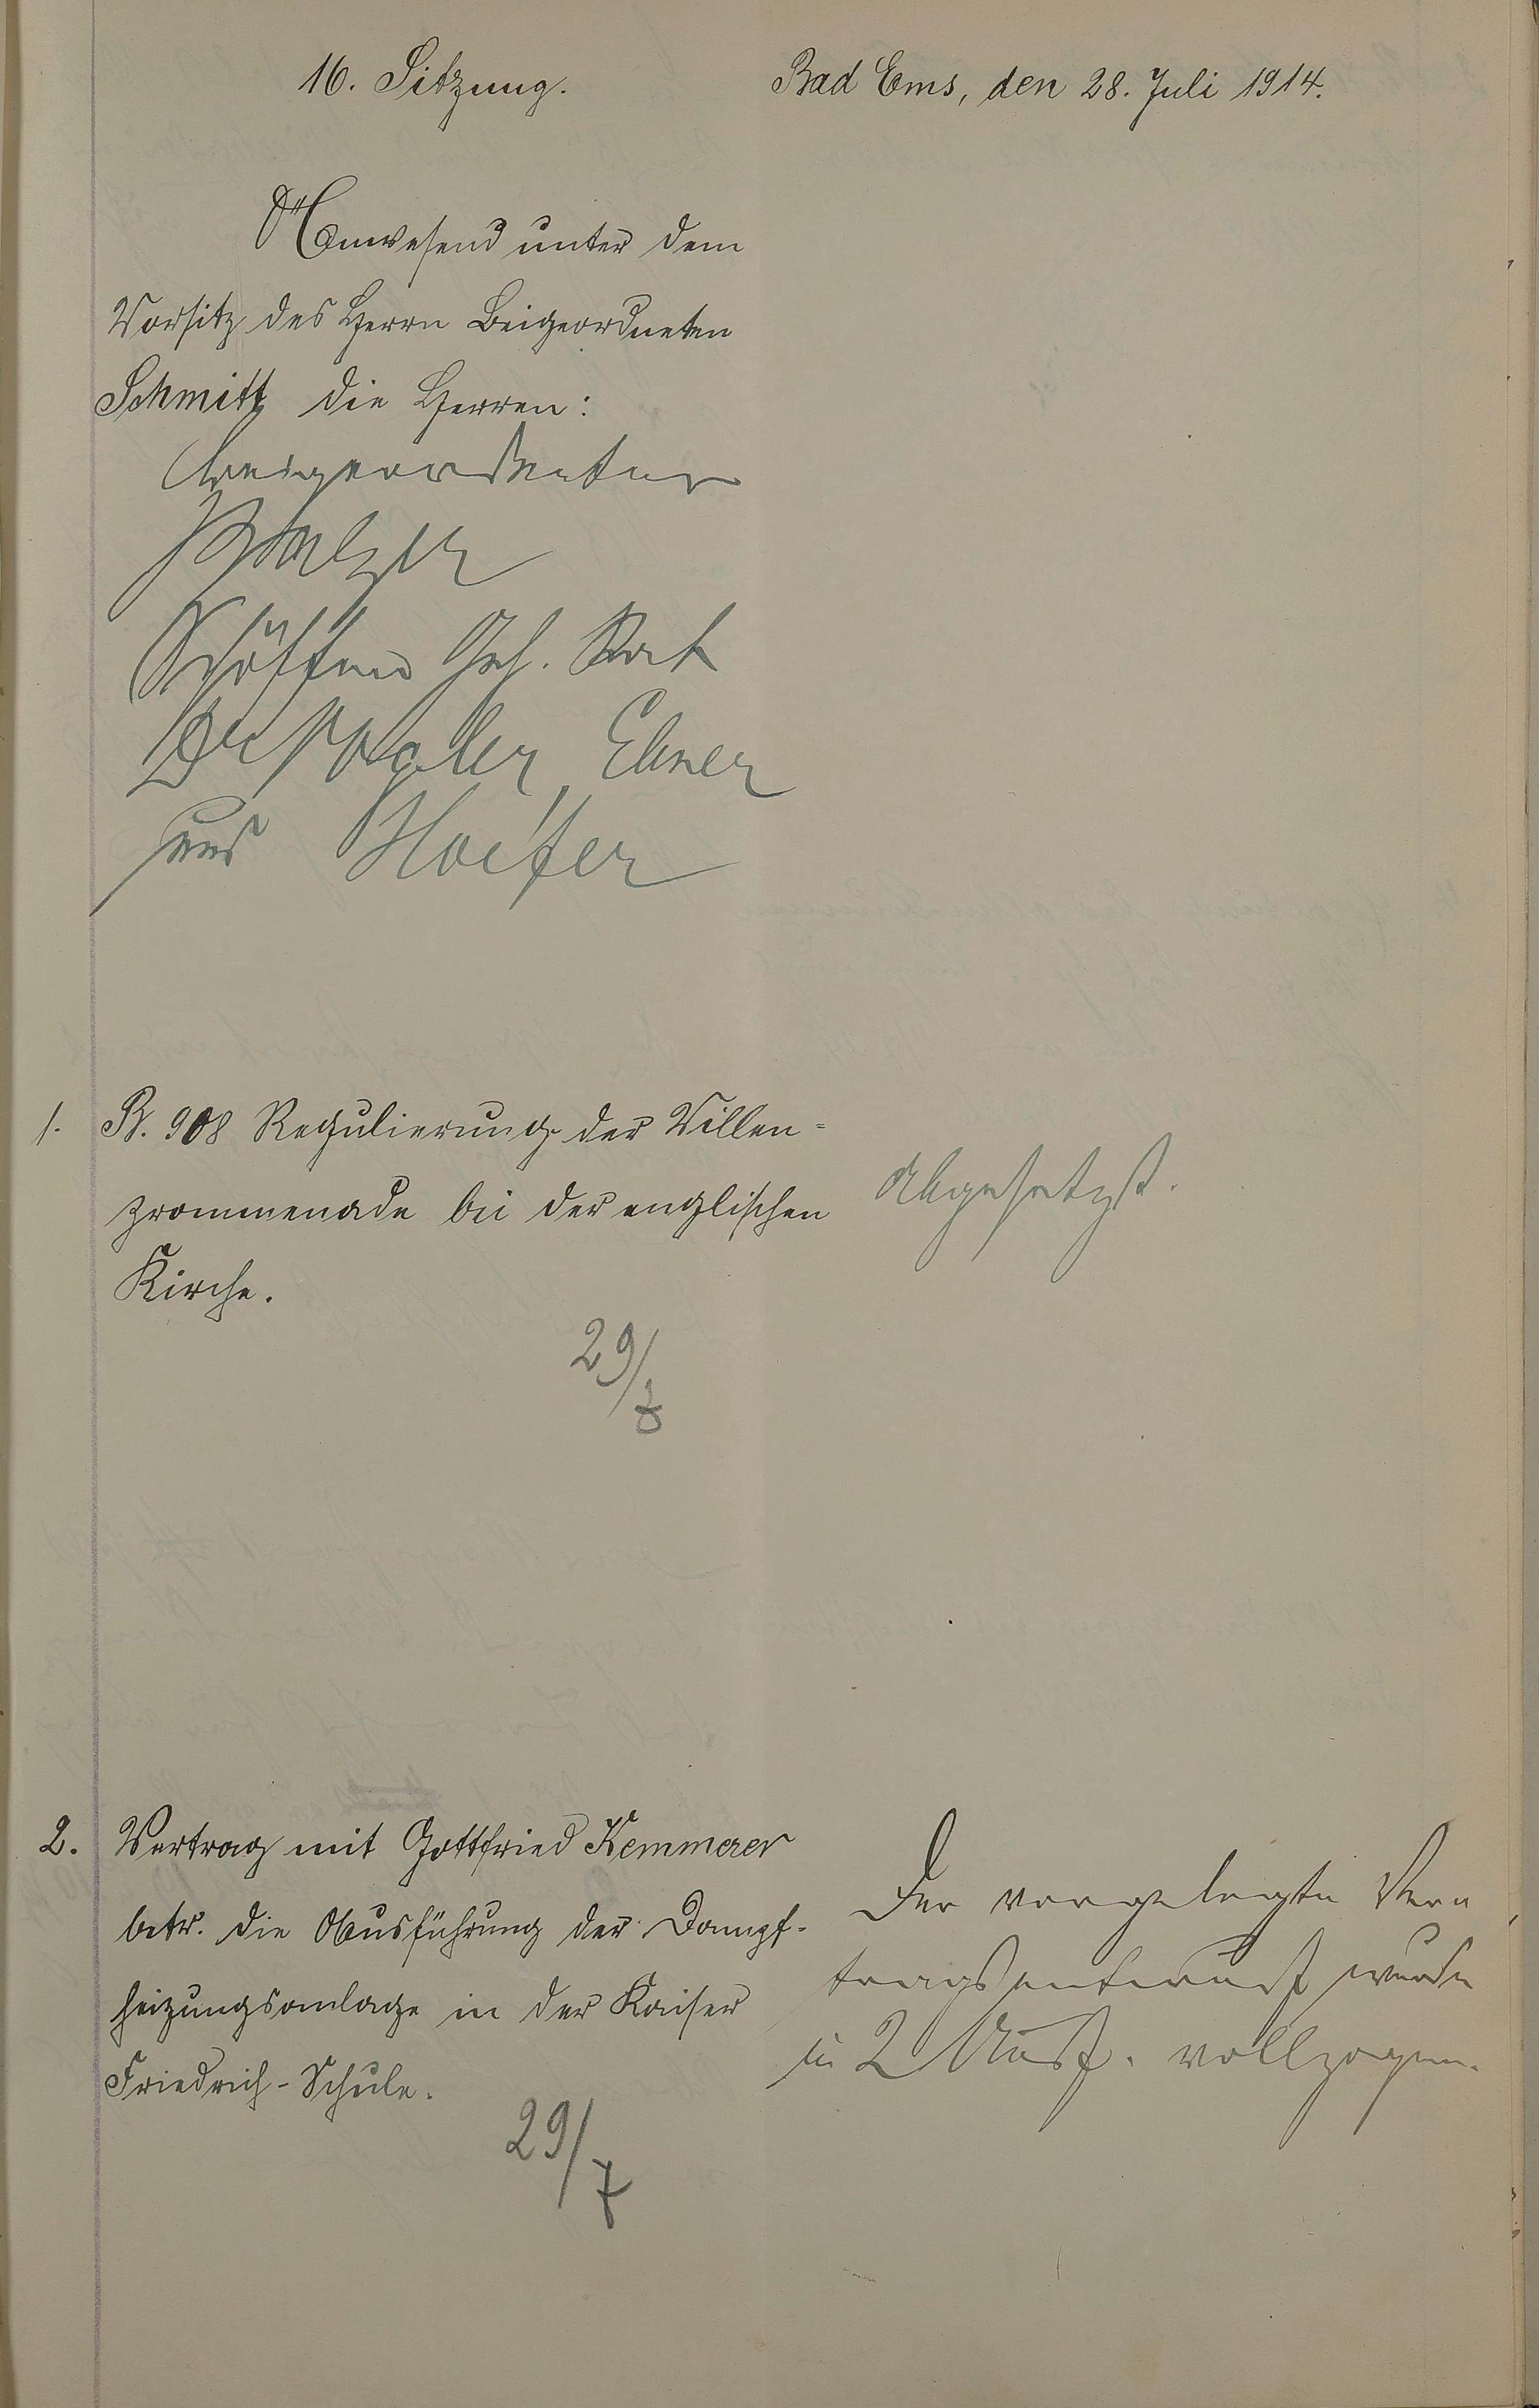 16. Sitzung.
Bad Ems, den 28. Juli 1914.
Anwesend unter dem
Vorsitz des Herrn Beigeordneten
Schmitt die Herren:
Beigeordneter
Balzer
Schöffen Geh. Rat
Dr Vogler, Ebner
und Hoefer
1. B. 908 Regulierung der Villen-
prommenade bei der englischen
Kirche.
Abgesetzt.
29/7
2. Vertrag mit Gottfried Kemmerer
betr. die Ausführung der Dampf-
heizungsanlage in der Kaiser
Friedrich-Schule.
29/7
Der vorgelegte Ver-
tragsentwurf wurde
in 2 Ausf. vollzogen.